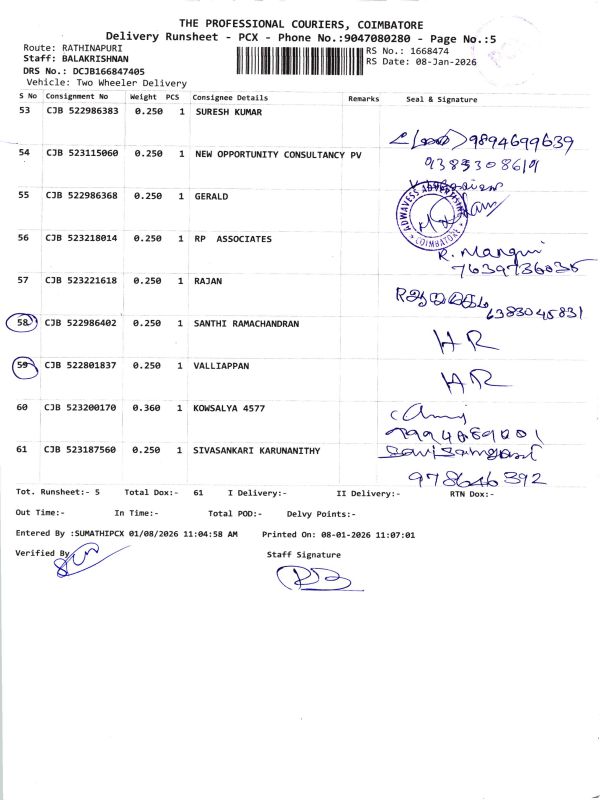 THE PROFESSIONAL COURIERS, COIMBATORE
Delivery Runsheet - PCX - Phone No.:9047080280 - Page No.:5
Route: RATHINAPURI
RS No.: 1668474
Staff: BALAKRISHNAN
RS Date: 08-Jan-2026
DRS No.: DCJB166847405
Vehicle: Two Wheeler Delivery
S No Consignment No Weight PCS Consignee Details Remarks Seal & Signature
53 CJB 522986383 0.250 1 SURESH KUMAR
9894699639
54 CJB 523115060 0.250 1 NEW OPPORTUNITY CONSULTANCY PV
9385308619
55 CJB 522986368 0.250 1 GERALD
ADWAVESS ADVERTISING
COIMBATORE
56 CJB 523218014 0.250 1 RP ASSOCIATES
R. Mangai
7639736035
57 CJB 523221618 0.250 1 RAJAN
6383045831
58 CJB 522986402 0.250 1 SANTHI RAMACHANDRAN
HR
59 CJB 522801837 0.250 1 VALLIAPPAN
HR
60 CJB 523200170 0.360 1 KOWSALYA 4577
61 CJB 523187560 0.250 1 SIVASANKARI KARUNANITHY
978646392
Tot. Runsheet:- 5 Total Dox:- 61 I Delivery:- II Delivery:- RTN Dox:-
Out Time:- In Time:- Total POD:- Delvy Points:-
Entered By :SUMATHIPCX 01/08/2026 11:04:58 AM Printed On: 08-01-2026 11:07:01
Verified By
Staff Signature